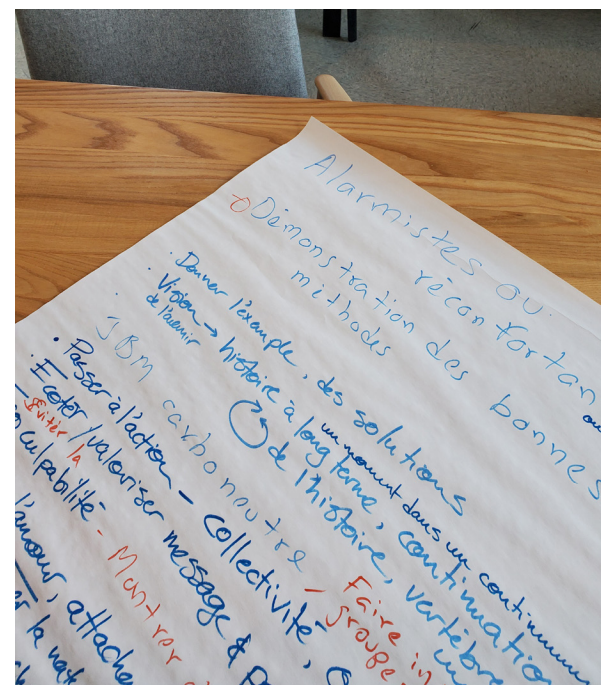 Alarmistes ou
réconfortan
Démonstration des bonnes
méthodes
• Donner l'exemple, des solutions
• Vision → histoire à long terme, continuation
de l'avenir
un moment dans un continuum
de l'histoire, vertèbre
• JBM carboneutre
Faire in
groupe
• Passer à l'action - collectivité,
• Écouter/valoriser message &
Éviter la
culpabilité - Montrer
l'amour, attache
la